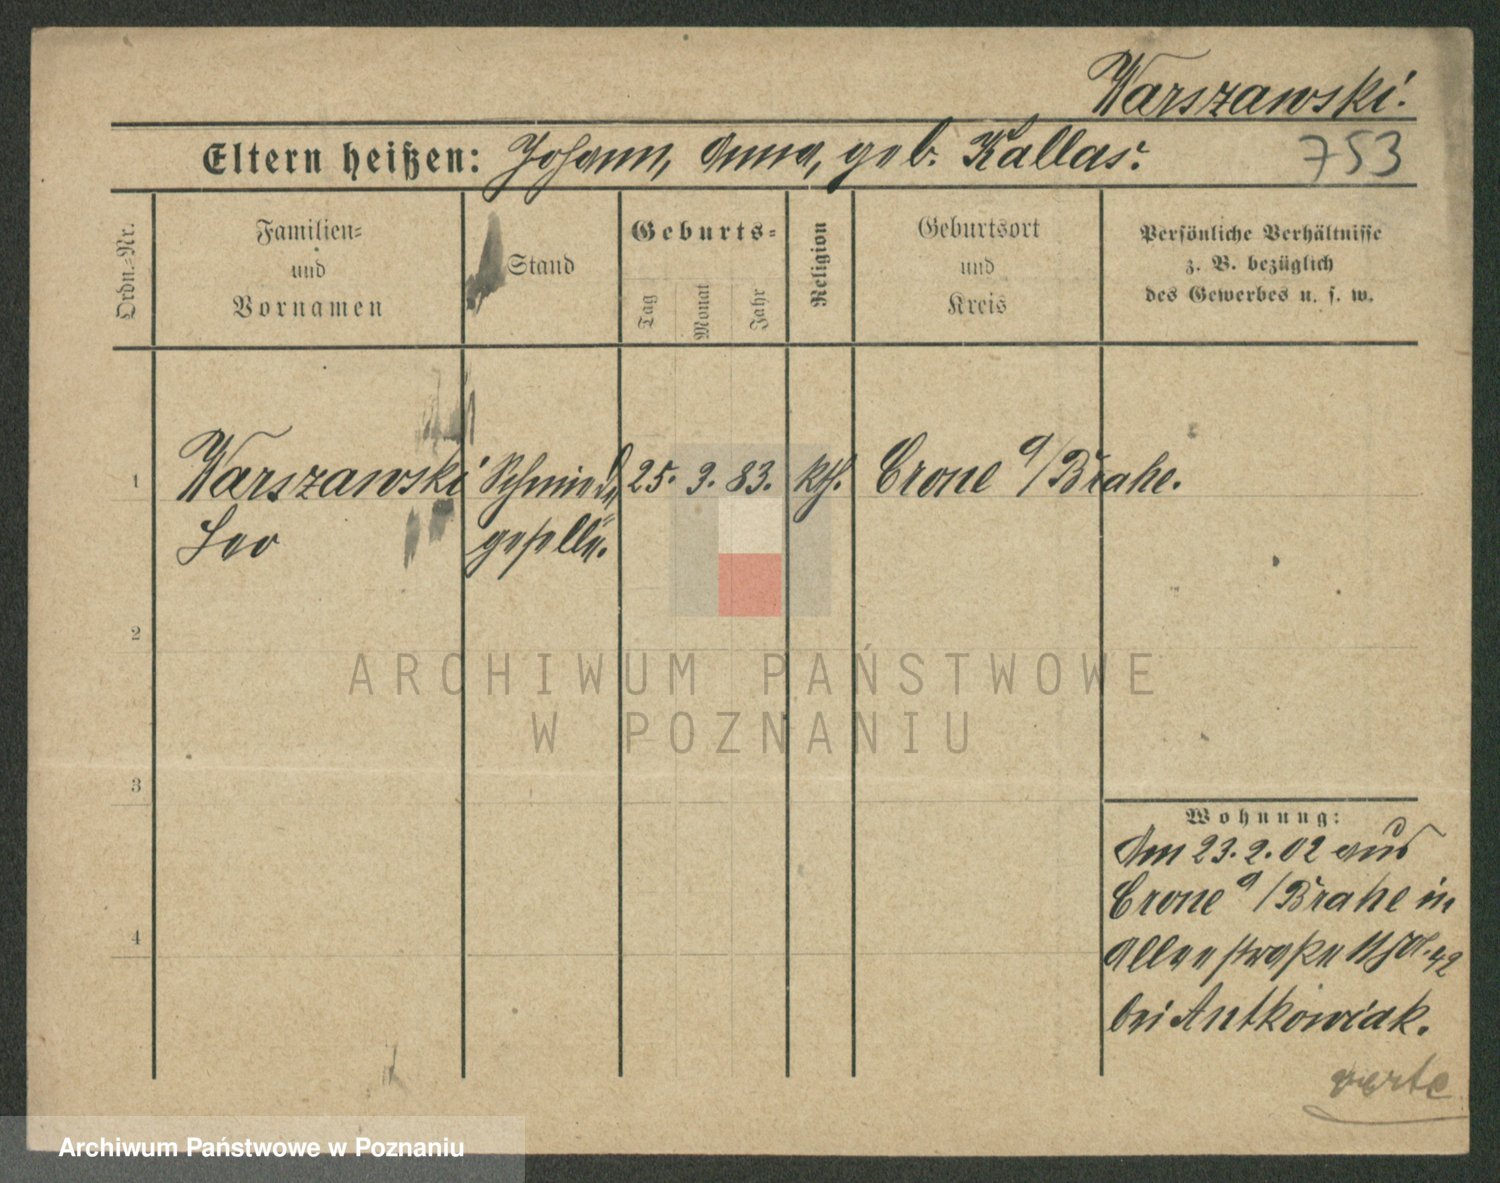 Warszawski.
Eltern heißen: Johann, Anna, geb. Kallas.
753
Ordn.-Nr.
Familien-
und
Vornamen
Stand
Geburts-
Tag
Monat
Jahr
Religion
Geburtsort
und
Kreis
Persönliche Verhältnisse
z. B. bezüglich
des Gewerbes u. s. w.
1 Warszawski Schmiede 25. 9. 83. kth. Crone a/Brahe.
Leo geselle.
2
3
4
Wohnung:
Am 23.2.02 aus
Crone a/Brahe in
Alleestraße 42
bei Antkowiak.
verte
ARCHIWUM PAŃSTWOWE
W POZNANIU
Archiwum Państwowe w Poznaniu